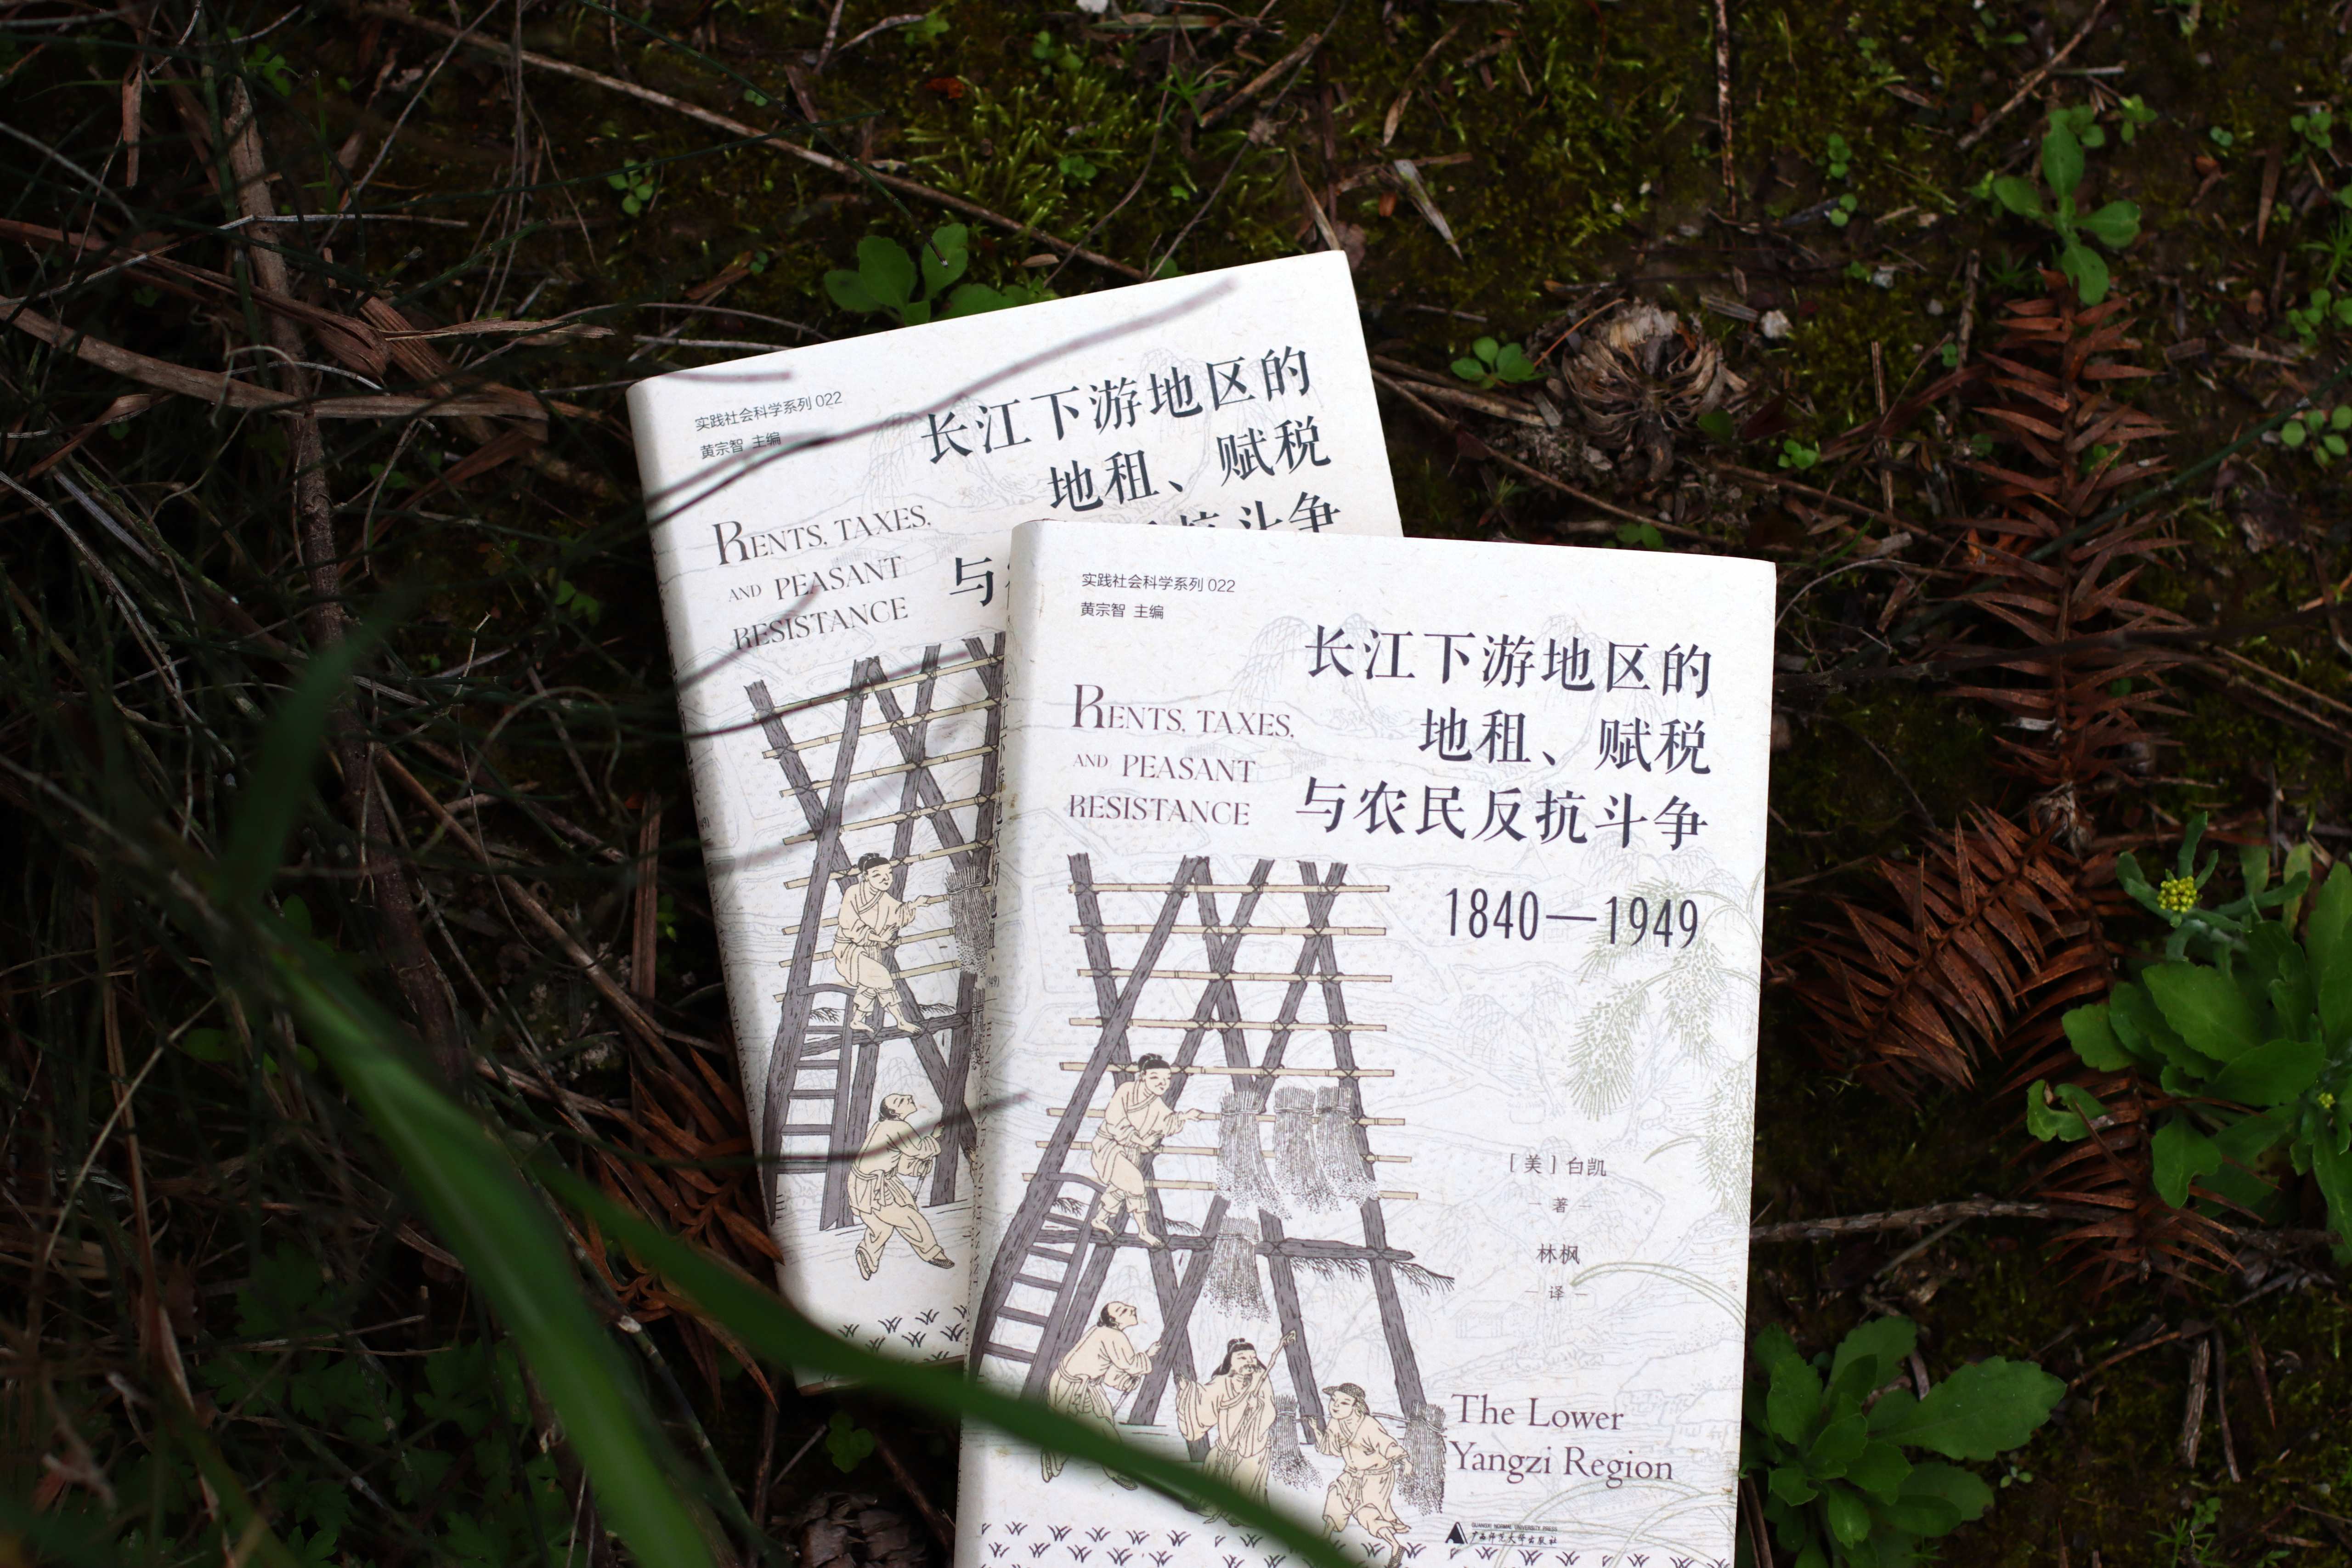 实践社会科学系列 022
黄宗智 主编
长江下游地区的
地租、赋税
与
抗斗争
RENTS, TAXES,
AND PEASANT
RESISTANCE
实践社会科学系列 022
黄宗智 主编
长江下游地区的
地租、赋税
与农民反抗斗争
1840—1949
RENTS, TAXES,
AND PEASANT
RESISTANCE
[美]白凯
著
林枫
译
The Lower
Yangzi Region
GUANGXI NORMAL UNIVERSITY PRESS
广西师范大学出版社